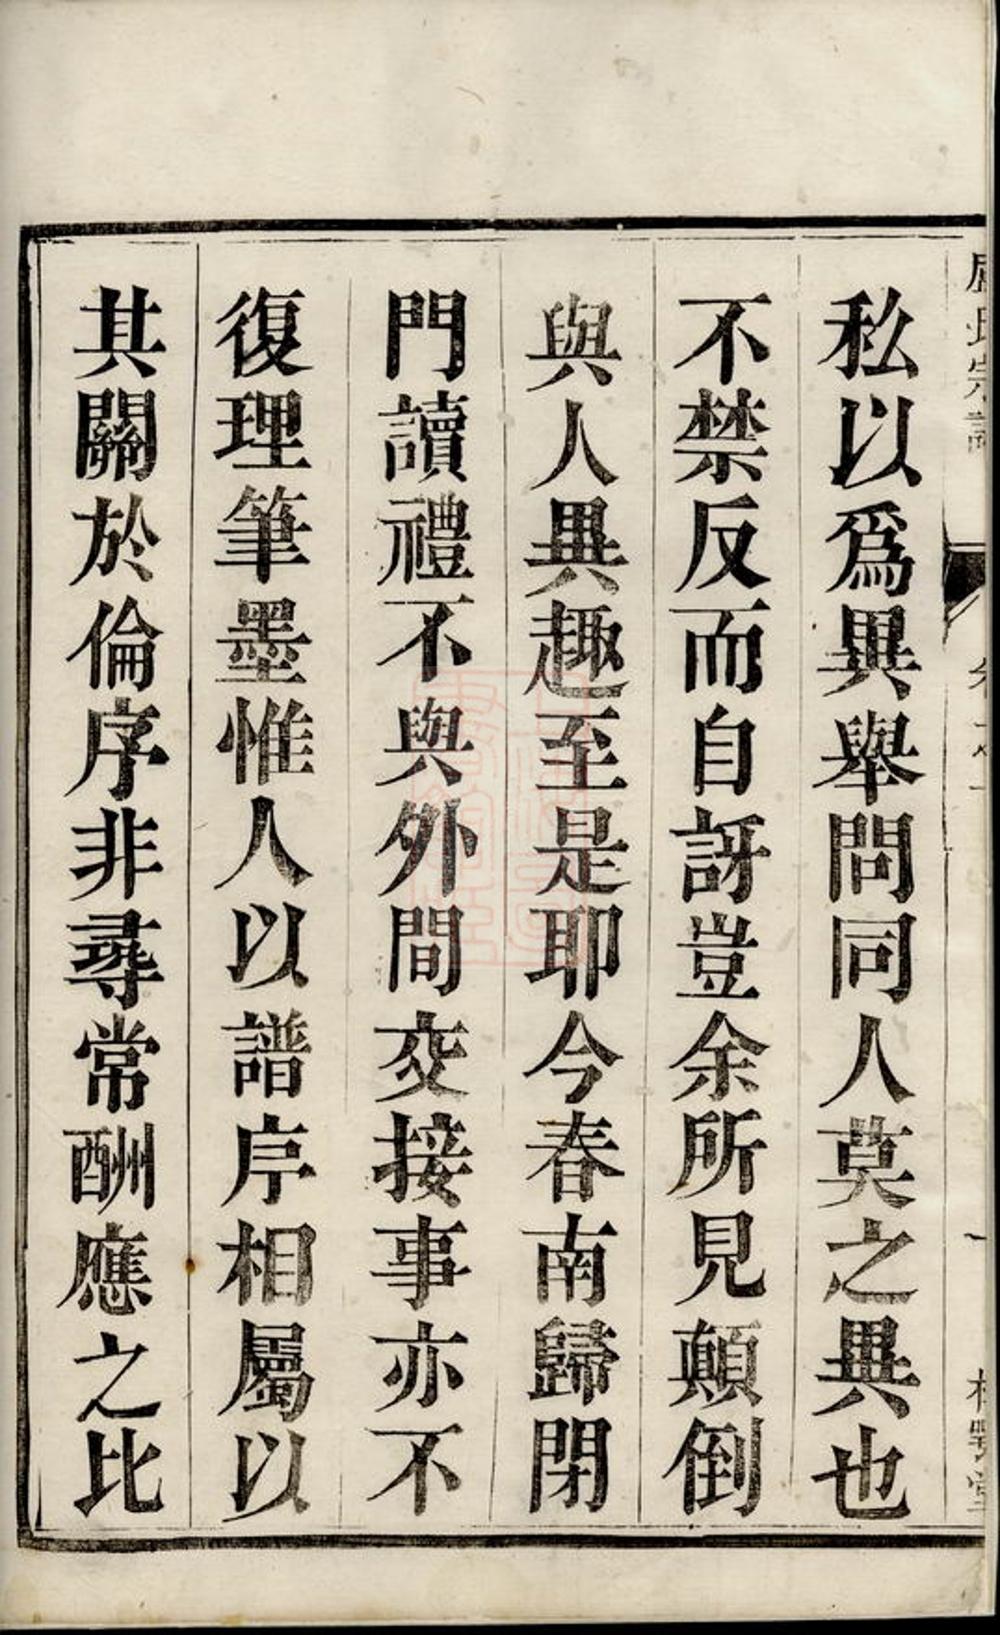 私以為異舉問同人莫之異也
不禁反而自訝豈余所見顛倒
與人異趣至是耶今春南歸閉
門讀禮不與外間交接事亦不
復理筆墨惟人以譜序相屬以
其關於倫序非尋常酬應之比